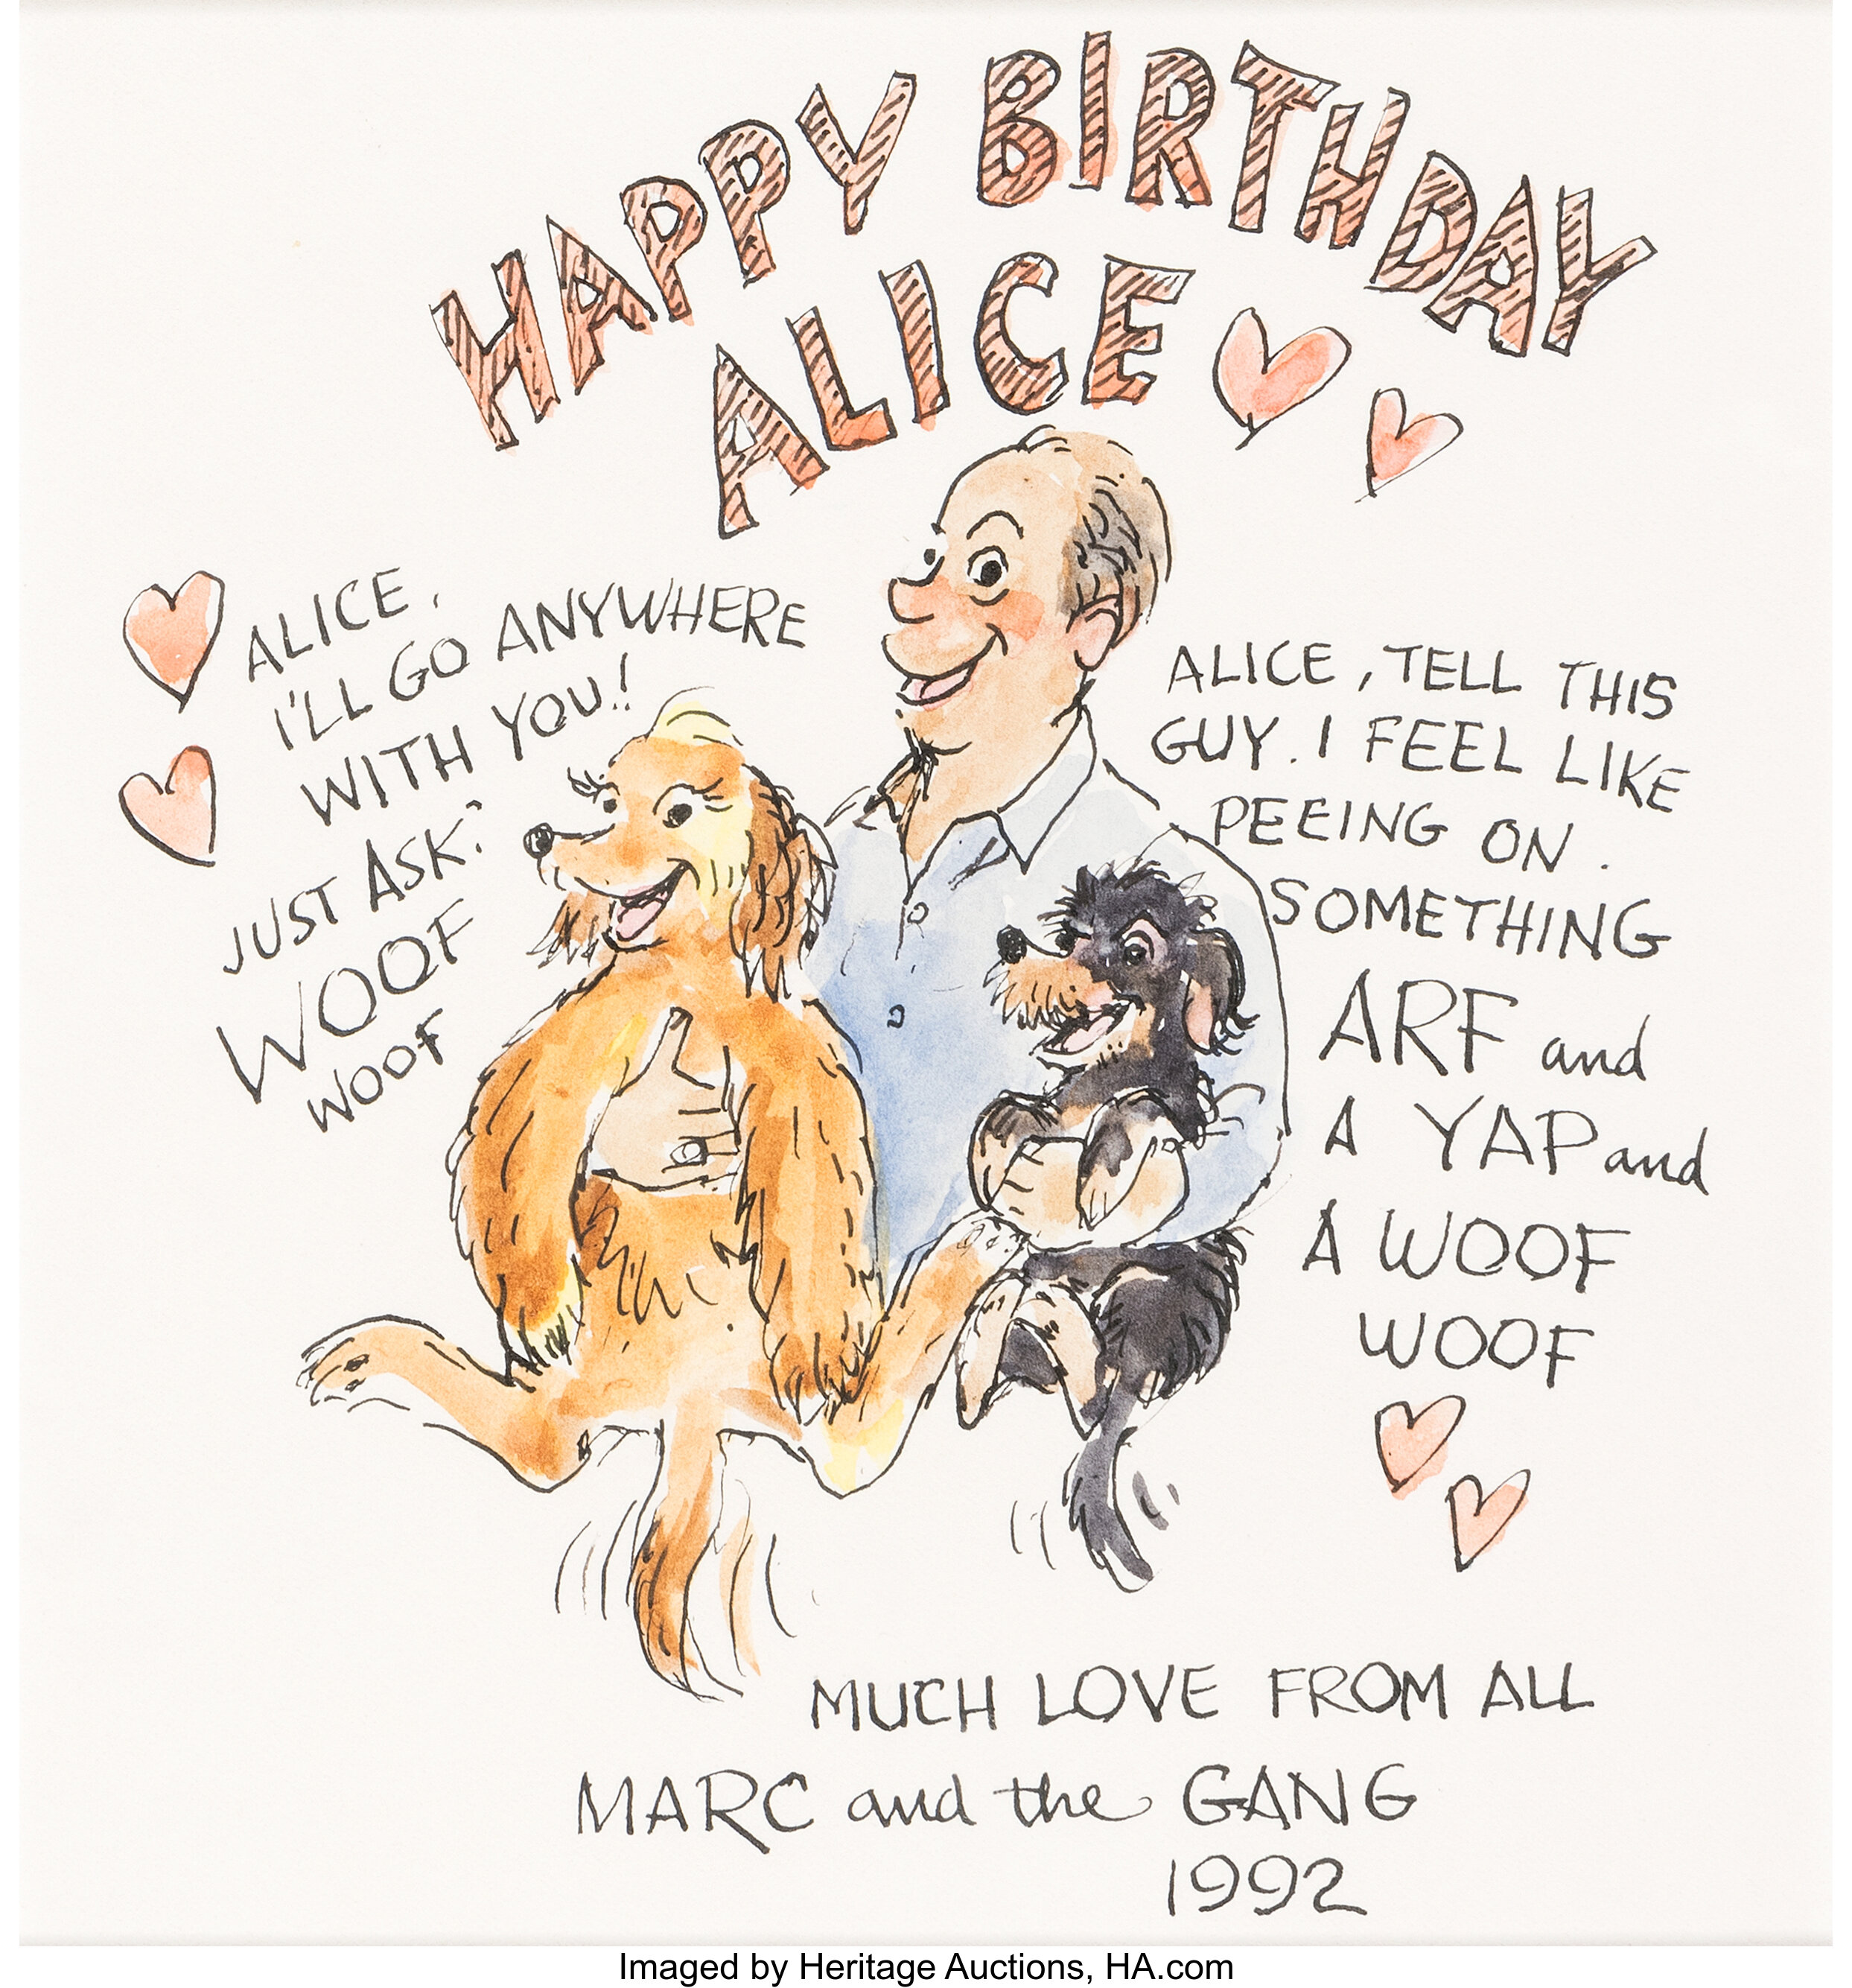 HAPPY BIRTHDAY
ALICE
ALICE,
I'LL GO ANYWHERE
WITH YOU!
JUST ASK.
WOOF
WOOF
ALICE, TELL THIS
GUY. I FEEL LIKE
PEEING ON.
SOMETHING
ARF and
A YAP and
A WOOF
WOOF
MUCH LOVE FROM ALL
MARC and the GANG
1992
Imaged by Heritage Auctions, HA.com